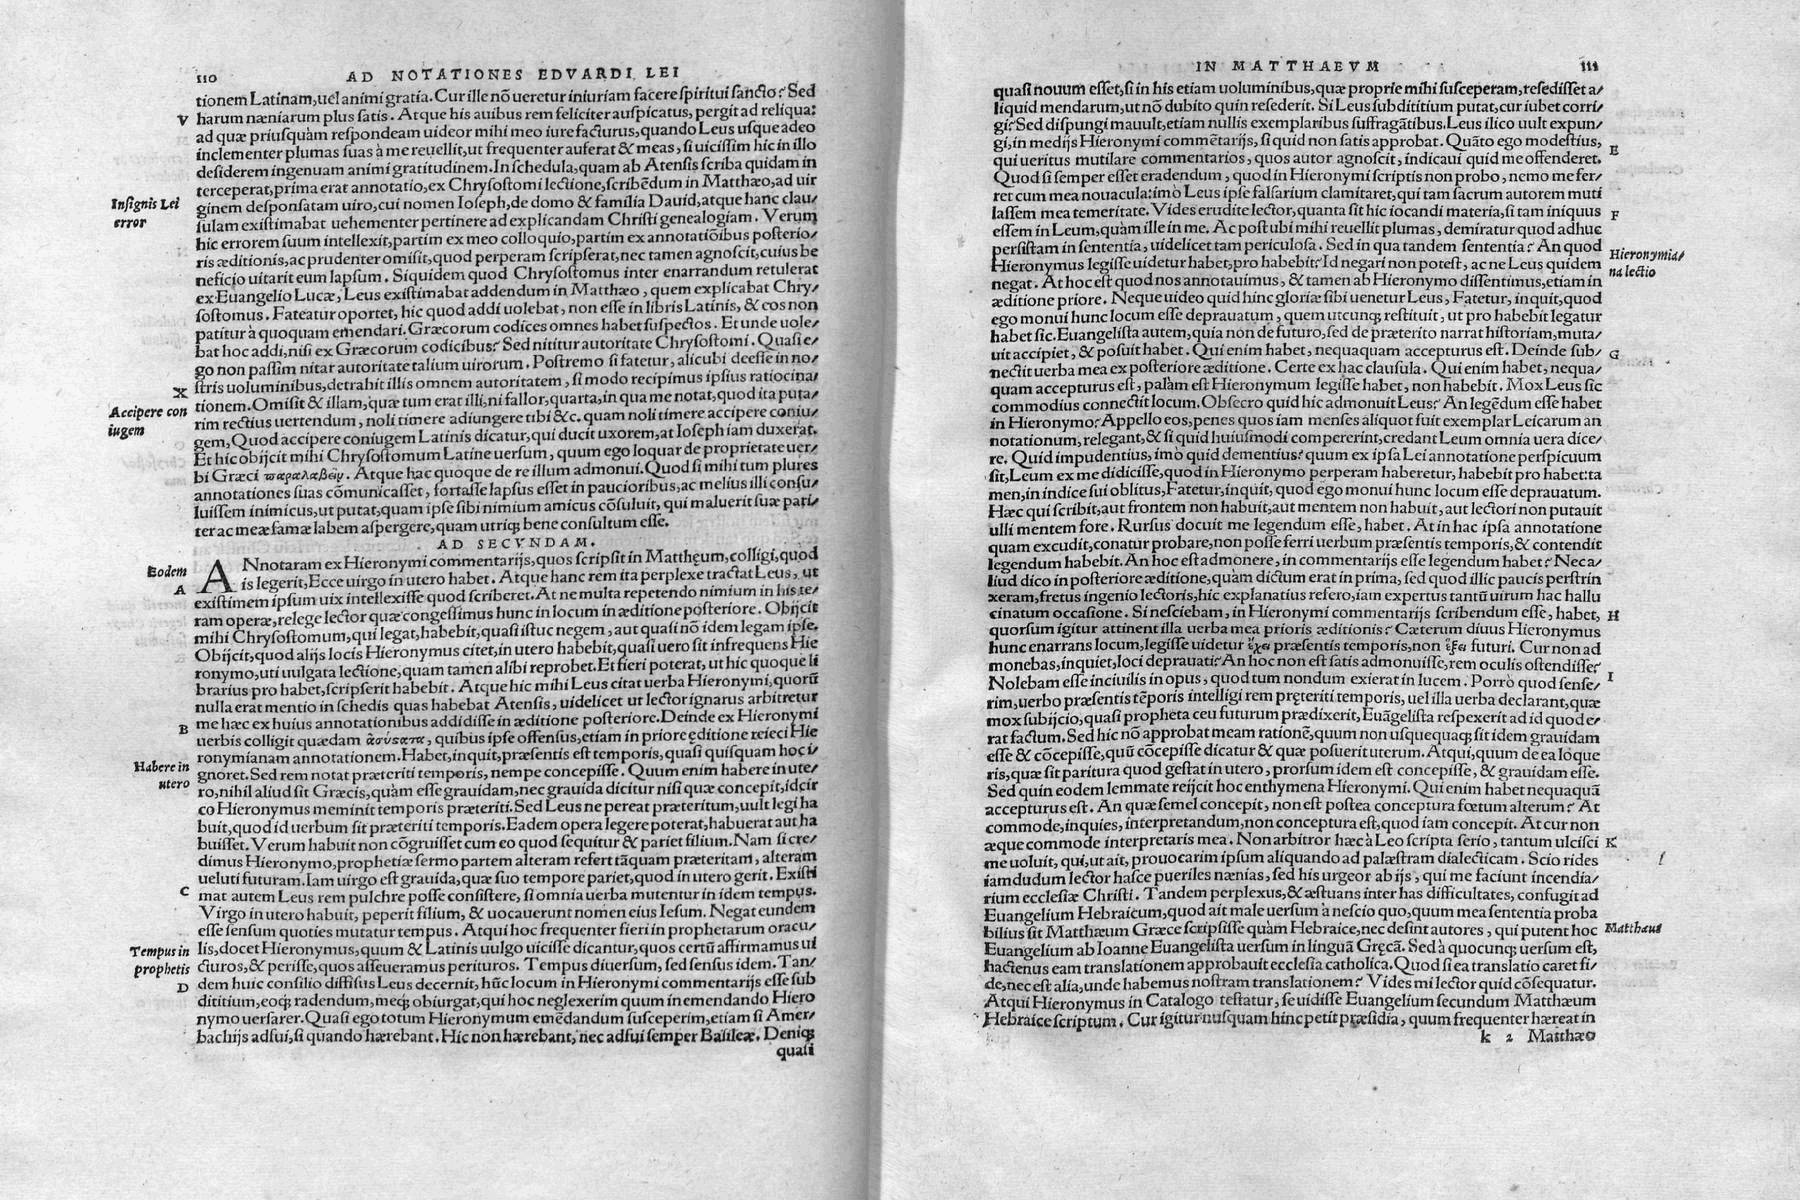 110 AD NOTATIONES EDVARDI LEI
tionem Latinam, uel animi gratia. Cur ille nō ueretur iniuriam facere spiritui sancto? Sed
V harum næniarum plus satis. Atque his auibus rem feliciter auspicatus, pergit ad reliqua:
ad quæ priusquàm respondeam uideor mihi meo iure facturus, quando Leus usque adeo
inclementer plumas suas à me reuellit, ut frequenter auferat & meas, si uicissim hic in illo
desiderem ingenuam animi gratitudinem. In schedula, quam ab Atensis scriba quidam in
terceperat, prima erat annotatio, ex Chrysostomi lectione, scribēdum in Matthæo, ad uir
Insignis Lei
error
ginem desponsatam uiro, cui nomen Ioseph, de domo & familia Dauid, atque hanc clau/
sulam existimabat uehementer pertinere ad explicandam Christi genealogiam. Verum
hic errorem suum intellexit, partim ex meo colloquio, partim ex annotatiōibus posterio/
ris æditionis, ac prudenter omisit, quod perperam scripserat, nec tamen agnoscit, cuius be
neficio uitarit eum lapsum. Siquidem quod Chrysostomus inter enarrandum retulerat
ex Euangelio Lucæ, Leus existimabat addendum in Matthæo, quem explicabat Chry/
sostomus. Fateatur oportet, hic quod addi uolebat, non esse in libris Latinis, & eos non
patitur à quoquam emendari. Græcorum codices omnes habet suspectos. Et unde uole/
bat hoc addi, nisi ex Græcorum codicibus? Sed nititur autoritate Chrysostomi. Quasi e/
go non passim nitar autoritate talium uirorum. Postremo si fatetur, alicubi deesse in no/
stris uoluminibus, detrahit illis omnem autoritatem, si modo recipimus ipsius ratiocina/
X tionem. Omisit & illam, quæ tum erat illi, ni fallor, quarta, in qua me notat, quod ita puta/
Accipere con
iugem
rim rectius uertendum, noli timere adiungere tibi &c. quam noli timere accipere coniu/
gem, Quod accipere coniugem Latinis dicatur, qui ducit uxorem, at Ioseph iam duxerat.
Et hic obijcit mihi Chrysostomum Latine uersum, quum ego loquar de proprietate uer/
bi Græci παραλαβεῖν. Atque hac quoque de re illum admonui. Quod si mihi tum plures
annotationes suas cōmunicasset, fortasse lapsus esset in paucioribus, ac melius illi consu/
luissem inimicus, ut putat, quam ipse sibi nimium amicus cōsuluit, qui maluerit suæ pari/
ter ac meæ famæ labem aspergere, quam utriqꝫ bene consultum esse.
AD SECVNDAM.
Eodem
A
ANnotaram ex Hieronymi commentarijs, quos scripsit in Mattheum, colligi, quod
is legerit, Ecce uirgo in utero habet. Atque hanc rem ita perplexe tractat Leus, ut
existimem ipsum uix intellexisse quod scriberet. At ne multa repetendo nimium in his te/
ram operæ, relege lector quæ congessimus hunc in locum in æditione posteriore. Obijcit
mihi Chrysostomum, qui legat, habebit, quasi istuc negem, aut quasi nō idem legam ipse.
Obijcit, quod alijs locis Hieronymus citet, in utero habebit, quasi uero sit infrequens Hie
ronymo, uti uulgata lectione, quam tamen alibi reprobet. Et fieri poterat, ut hic quoque li
brarius pro habet, scripserit habebit. Atque hic mihi Leus citat uerba Hieronymi, quorū
nulla erat mentio in schedis quas habebat Atensis, uidelicet ut lector ignarus arbitretur
me hæc ex huius annotationibus addidisse in æditione posteriore. Deinde ex Hieronymi
B uerbis colligit quædam ἀσύςατα, quibus ipse offensus, etiam in priore ęditione reieci Hie
ronymianam annotationem. Habet, inquit, præsentis est temporis, quasi quisquam hoc i/
Habere in
utero
gnoret. Sed rem notat præteriti temporis, nempe concepisse. Quum enim habere in ute/
ro, nihil aliud sit Græcis, quàm esse grauidam, nec grauida dicitur nisi quæ concepit, idcir
co Hieronymus meminit temporis præteriti. Sed Leus ne pereat præteritum, uult legi ha
buit, quod id uerbum sit præteriti temporis. Eadem opera legere poterat, habuerat aut ha
buisset. Verum habuit non cōgruisset cum eo quod sequitur & pariet filium. Nam si cre/
dimus Hieronymo, prophetiæ sermo partem alteram refert tāquam præteritam, alteram
ueluti futuram. Iam uirgo est grauida, quæ suo tempore pariet, quod in utero gerit. Existi
C mat autem Leus rem pulchre posse consistere, si omnia uerba mutentur in idem tempus.
Virgo in utero habuit, peperit filium, & uocauerunt nomen eius Iesum. Negat eundem
esse sensum quoties mutatur tempus. Atqui hoc frequenter fieri in prophetarum oracu/
Tempus in
prophetis
lis, docet Hieronymus, quum & Latinis uulgo uicisse dicantur, quos certū affirmamus ui
cturos, & perisse, quos asseueramus perituros. Tempus diuersum, sed sensus idem. Tan/
D dem huic consilio diffisus Leus decernit, hūc locum in Hieronymi commentarijs esse sub
dititium, eoqꝫ radendum, meqꝫ obiurgat, qui hoc neglexerim quum in emendando Hiero
nymo uersarer. Quasi ego totum Hieronymum emēdandum susceperim, etiam si Amer/
bachijs adfui, si quando hærebant. Hic non hærebant, nec adfui semper Basileæ. Deniqꝫ
quasi
IN MATTHAEVM 111
quasi nouum esset, si in his etiam uoluminibus, quæ proprie mihi susceperam, resedisset a/
liquid mendarum, ut nō dubito quin resederit. Si Leus subdititium putat, cur iubet corri/
gi? Sed dispungi mauult, etiam nullis exemplaribus suffragātibus. Leus ilico uult expun/
gi, in medijs Hieronymi commētarijs, si quid non satis approbat. Quāto ego modestius, E
qui ueritus mutilare commentarios, quos autor agnoscit, indicaui quid me offenderet.
Quod si semper esset eradendum, quod in Hieronymi scriptis non probo, nemo me fer/
ret cum mea nouacula: imò Leus ipse falsarium clamitaret, qui tam sacrum autorem muti
lassem mea temeritate. Vides erudite lector, quanta sit hic iocandi materia, si tam iniquus F
essem in Leum, quàm ille in me. Ac postubi mihi reuellit plumas, demiratur quod adhuc
persistam in sententia, uidelicet tam periculosa. Sed in qua tandem sententia? An quod
Hieronymus legisse uidetur habet, pro habebit? Id negari non potest, ac ne Leus quidem
Hieronymia/
na lectio
negat. At hoc est quod nos annotauimus, & tamen ab Hieronymo dissentimus, etiam in
æditione priore. Neque uideo quid hinc gloriæ sibi uenetur Leus, Fatetur, inquit, quod
ego monui hunc locum esse deprauatum, quem utcunqꝫ restituit, ut pro habebit legatur
habet sic. Euangelista autem, quia non de futuro, sed de præterito narrat historiam, muta/
uit accipiet, & posuit habet. Qui enim habet, nequaquam accepturus est. Deinde sub/ G
nectit uerba mea ex posteriore æditione. Certe ex hac clausula. Qui enim habet, nequa/
quam accepturus est, palàm est Hieronymum legisse habet, non habebit. Mox Leus sic
commodius connectit locum. Obsecro quid hic admonuit Leus? An legēdum esse habet
in Hieronymo? Appello eos, penes quos iam menses aliquot fuit exemplar Leicarum an
notationum, relegant, & si quid huiusmodi compererint, credant Leum omnia uera dice/
re. Quid impudentius, imò quid dementius? quum ex ipsa Lei annotatione perspicuum
sit, Leum ex me didicisse, quod in Hieronymo perperam haberetur, habebit pro habet: ta
men, in indice sui oblitus, Fatetur, inquit, quod ego monui hunc locum esse deprauatum.
Hæc qui scribit, aut frontem non habuit, aut mentem non habuit, aut lectori non putauit
ulli mentem fore. Rursus docuit me legendum esse, habet. At in hac ipsa annotatione
quam excudit, conatur probare, non posse ferri uerbum præsentis temporis, & contendit
legendum habebit. An hoc est admonere, in commentarijs esse legendum habet? Nec a/
liud dico in posteriore æditione, quàm dictum erat in prima, sed quod illic paucis perstrin
xeram, fretus ingenio lectoris, hic explanatius refero, iam expertus tantū uirum hac hallu
cinatum occasione. Si nesciebam, in Hieronymi commentarijs scribendum esse, habet, H
quorsum igitur attinent illa uerba mea prioris æditionis? Cæterum diuus Hieronymus
hunc enarrans locum, legisse uidetur ἔχει præsentis temporis, non ἕξει futuri. Cur non ad
monebas, inquiet, loci deprauati? An hoc non est satis admonuisse, rem oculis ostendisse?
Nolebam esse inciuilis in opus, quod tum nondum exierat in lucem. Porrò quod sense/ I
rim, uerbo præsentis tēporis intelligi rem pręteriti temporis, uel illa uerba declarant, quæ
mox subijcio, quasi propheta ceu futurum prædixerit, Euāgelista respexerit ad id quod e/
rat factum. Sed hic nō approbat meam rationē, quum non usquequaqꝫ sit idem grauidam
esse & cōcepisse, quū cōcepisse dicatur & quæ posuerit uterum. Atqui, quum de ea loque
ris, quæ sit paritura quod gestat in utero, prorsum idem est concepisse, & grauidam esse.
Sed quin eodem lemmate reijcit hoc enthymema Hieronymi. Qui enim habet nequaquā
accepturus est. An quæ semel concepit, non est postea conceptura fœtum alterum? At
commode, inquies, interpretandum, non conceptura est, quod iam concepit. At cur non
æque commode interpretaris mea. Non arbitror hæc à Leo scripta serio, tantum ulcisci K
me uoluit, qui, ut ait, prouocarim ipsum aliquando ad palæstram dialecticam. Scio rides
iamdudum lector hasce pueriles nænias, sed his urgeor ab ijs, qui me faciunt incendia/
rium ecclesiæ Christi. Tandem perplexus, & æstuans inter has difficultates, confugit ad
Euangelium Hebraicum, quod ait male uersum à nescio quo, quum mea sententia proba
bilius sit Matthæum Græce scripsisse quàm Hebraice, nec desint autores, qui putent hoc Matthæus
Euangelium ab Ioanne Euangelista uersum in linguā Gręcā. Sed à quocunqꝫ uersum est,
hactenus eam translationem approbauit ecclesia catholica. Quod si ea translatio caret fi/
de, nec est alia, unde habemus nostram translationem? Vides mi lector quid cōsequatur.
Atqui Hieronymus in Catalogo testatur, se uidisse Euangelium secundum Matthæum
Hebraice scriptum. Cur igitur nusquam hinc petit præsidia, quum frequenter hæreat in
k 2 Matthæo